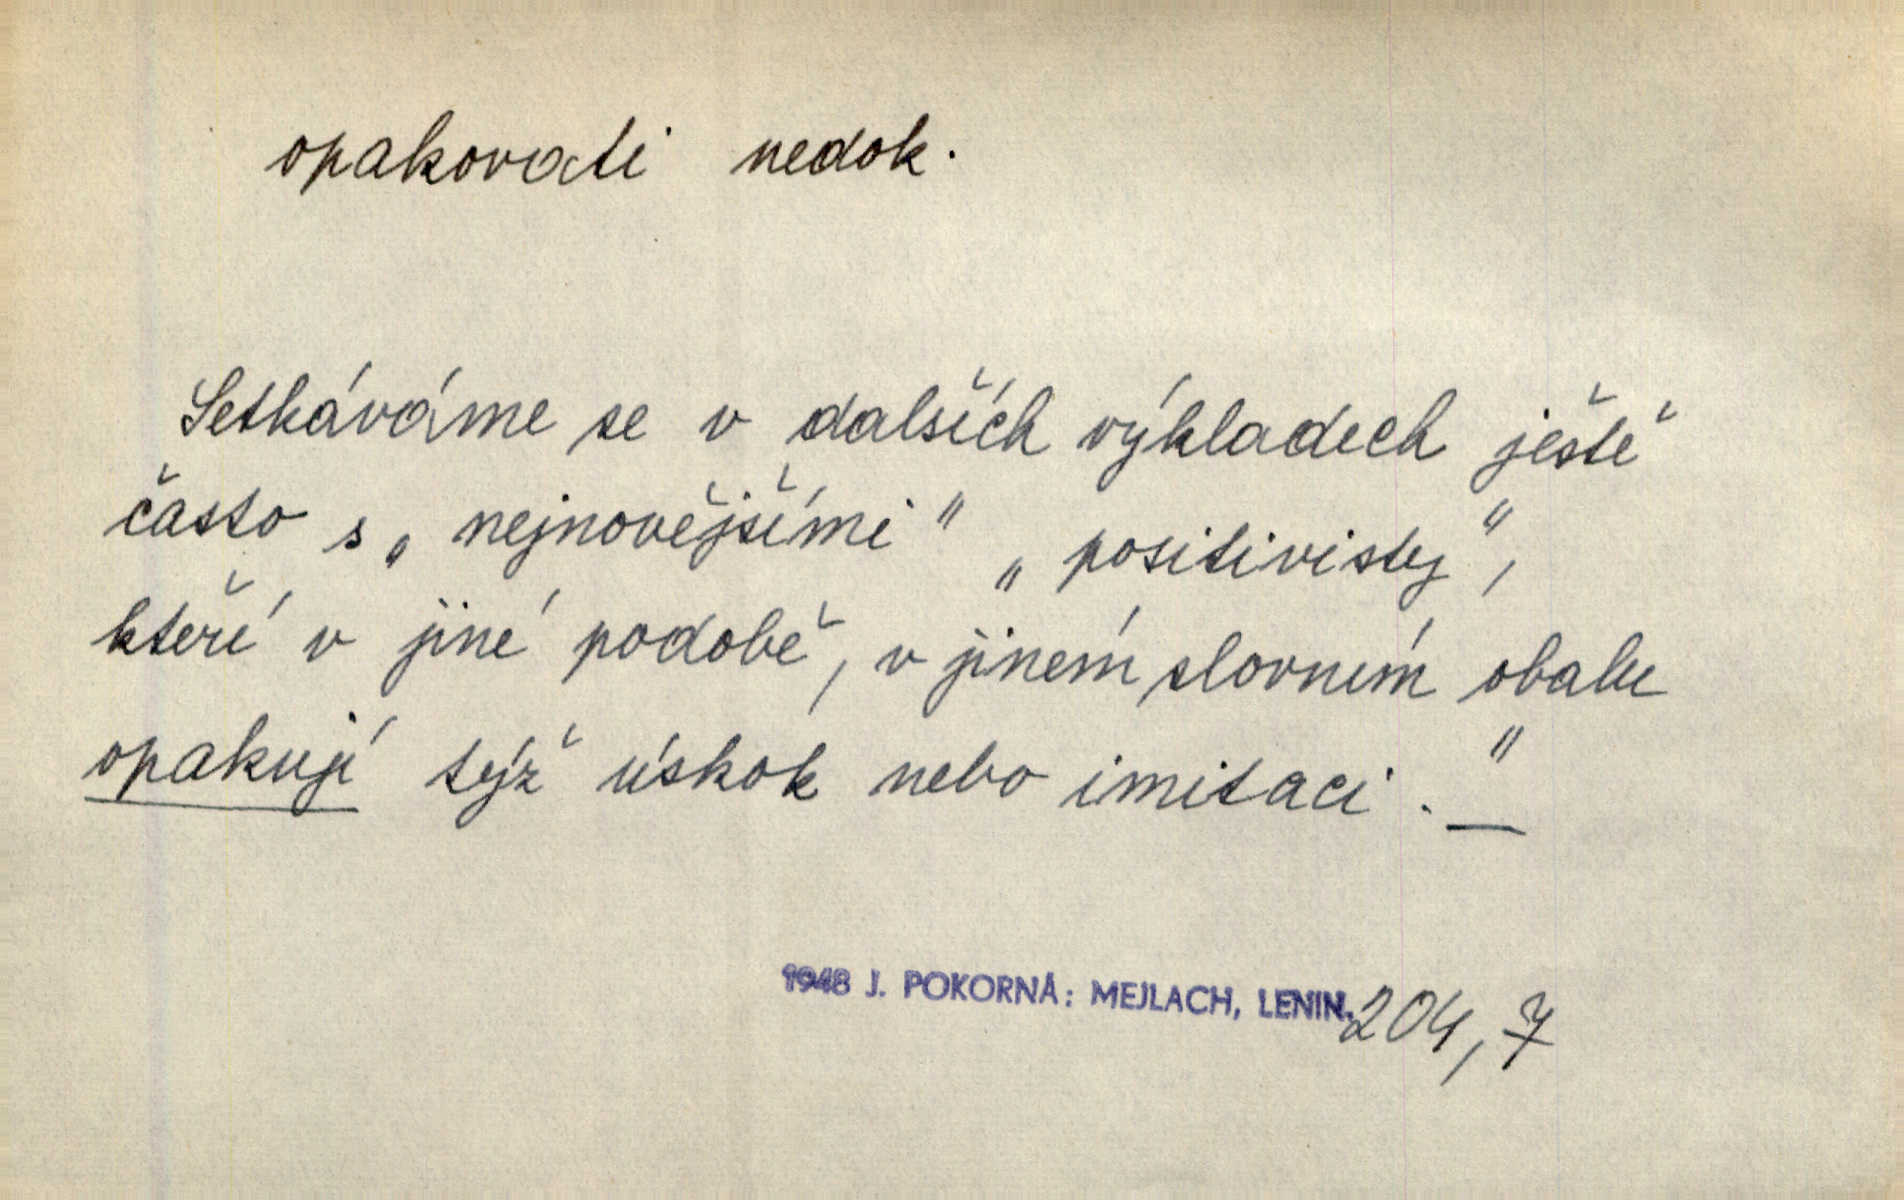 opakovati nedok.
Setkáváme se v dalších výkladech ještě
často s „nejnovějšími" „positivisty",
kteří v jiné podobě, v jiném slovním obalu
opakují týž úskok nebo imitaci. _"
1948 J. POKORNÁ: MEJLACH, LENIN. 204, 7